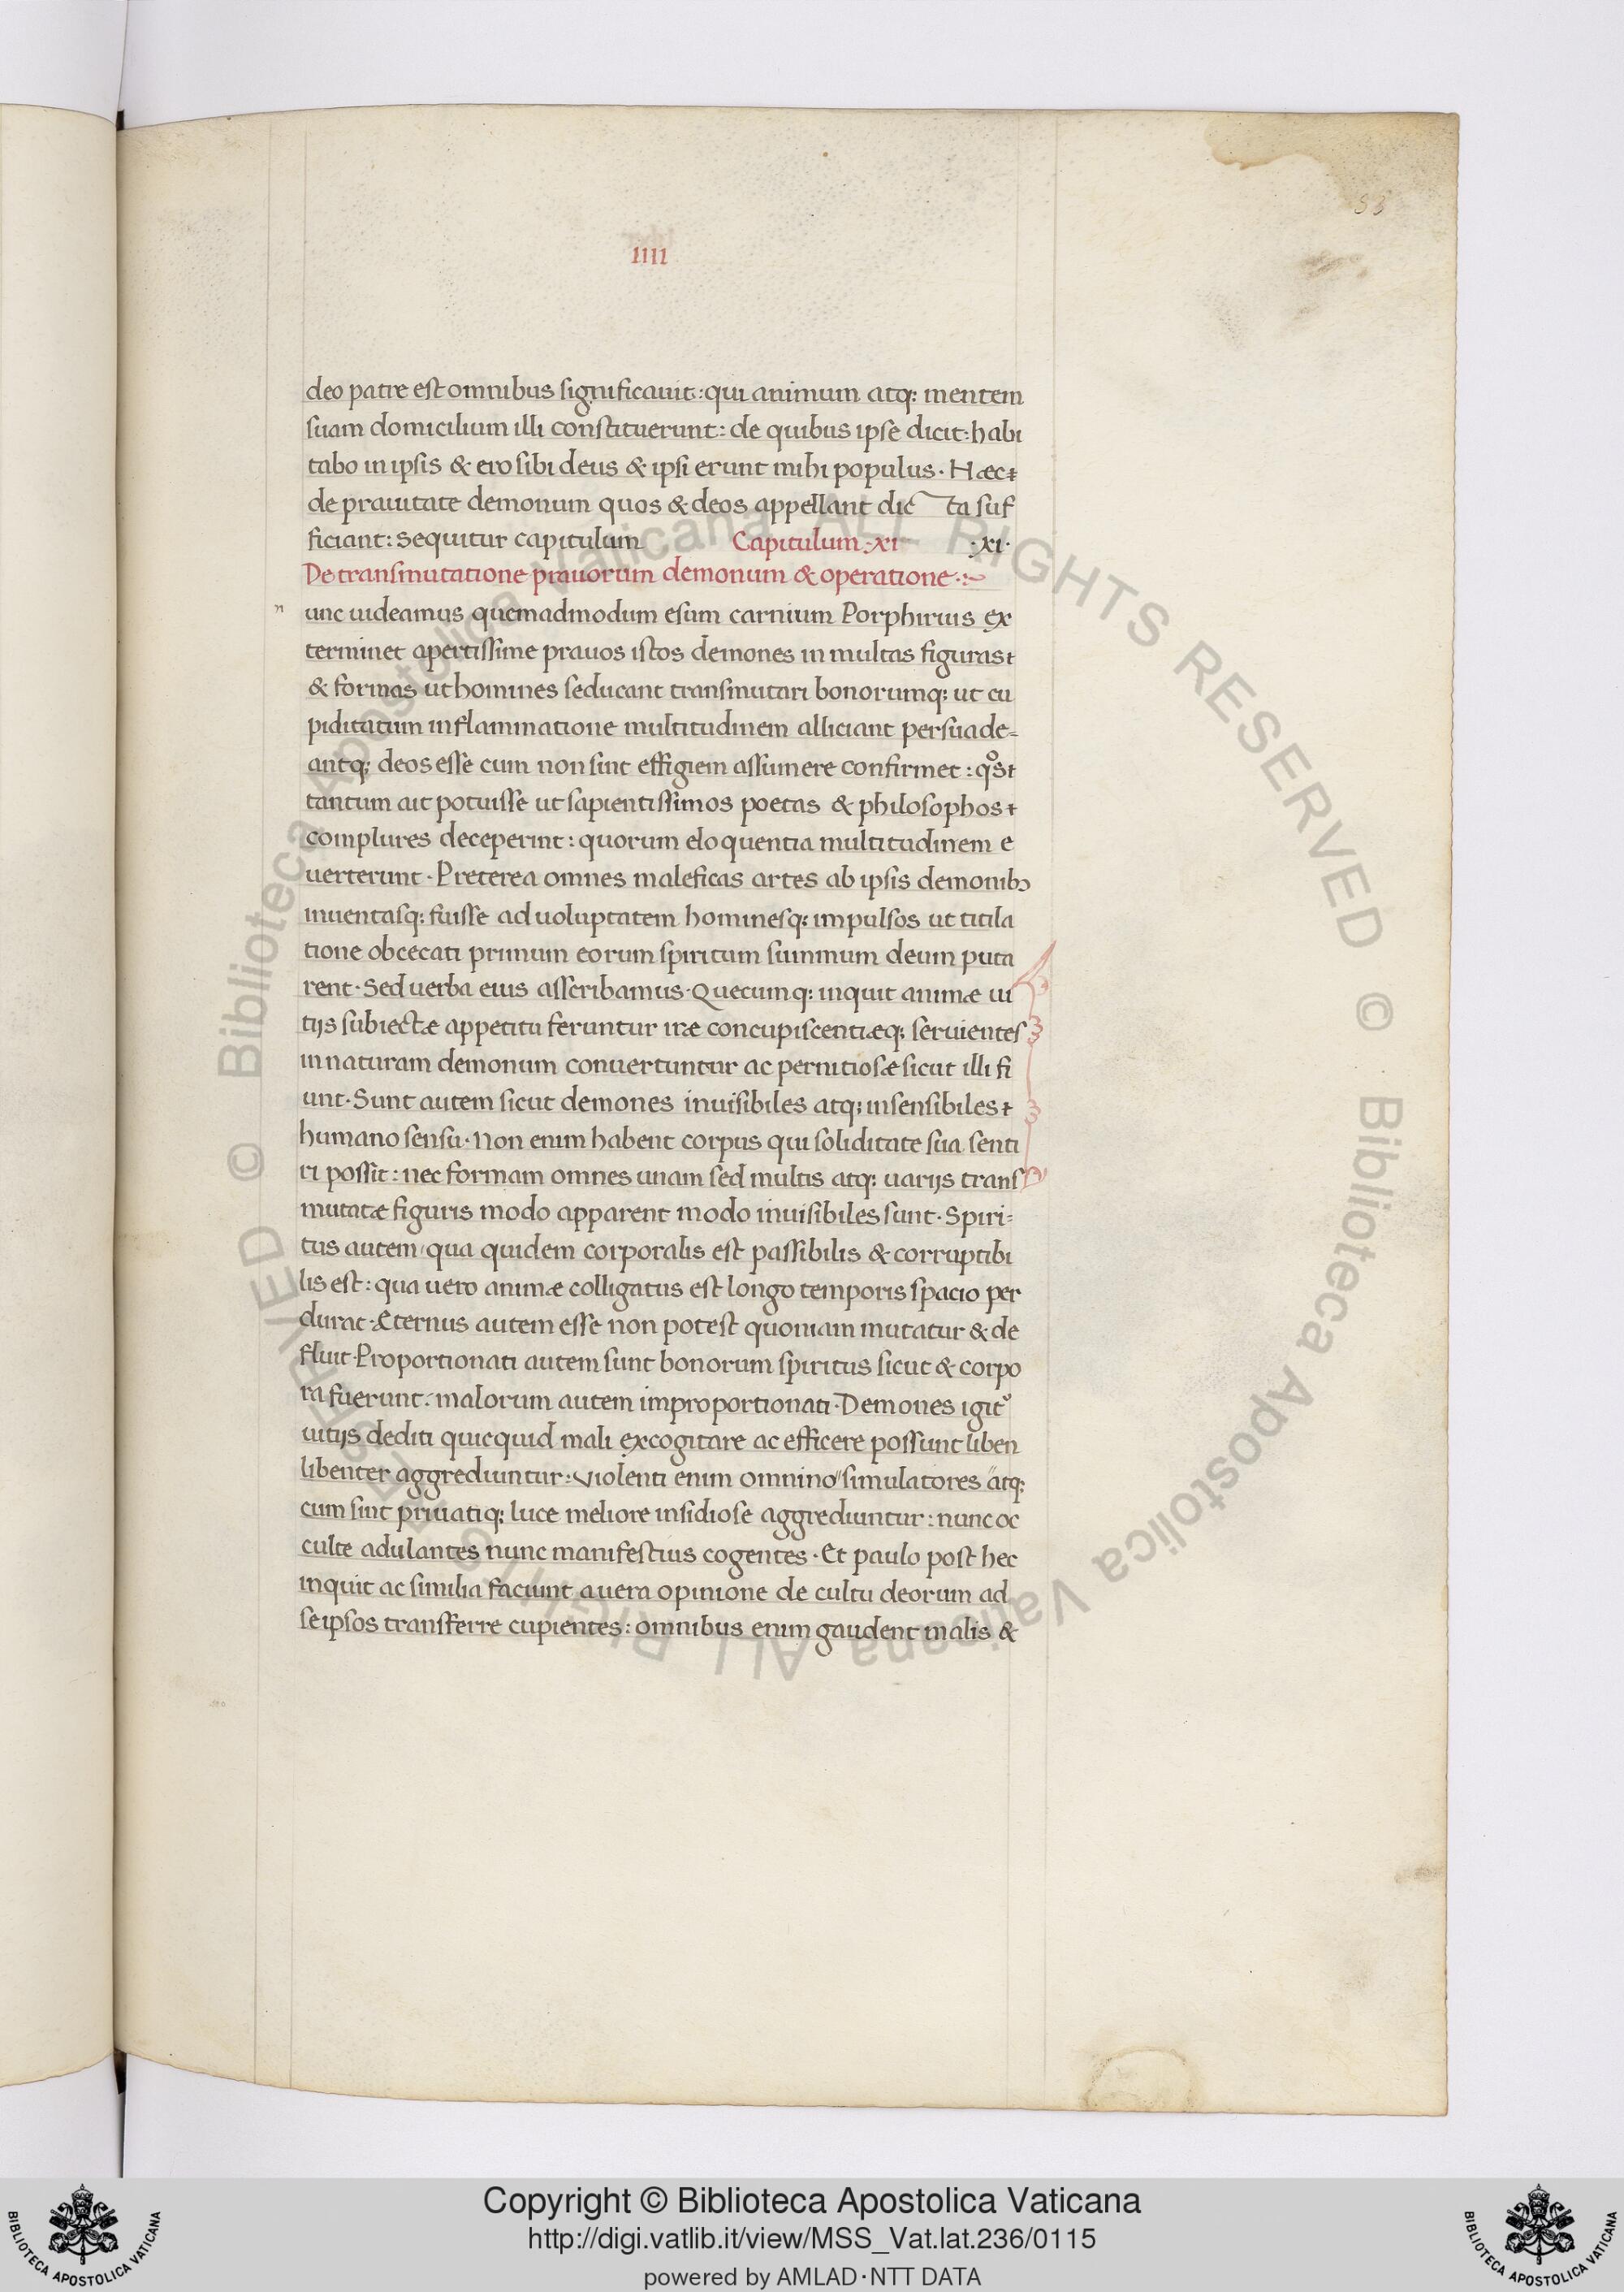 53
IIII
deo patre est omnibus significauit: qui animum atq: mentem
suam domicilium illi constituerunt: de quibus ipse dicit: habi
tabo in ipsis & ero sibi deus & ipsi erunt mihi populus · Hæc
de prauitate demonum quos & deos appellant dic ta suf
ficiant: sequitur capitulum Capitulum · xi · xi ·
De transmutatione prauorum demonum & operatione ·:~
n unc uideamus quemadmodum esum carnium Porphirius ex
terminet apertissime prauos istos demones in multas figuras
& formas ut homines seducant transmutari bonorumq: ut cu
piditatum inflammatione multitudinem alliciant persuade-
antq; deos esse cum non sint effigiem assumere confirmet: qͦs
tantum ait potuisse ut sapientissimos poetas & philosophos
complures deceperint: quorum eloquentia multitudinem e
uerterunt · Preterea omnes maleficas artes ab ipsis demonibꝫ
inuentasq: fuisse ad uoluptatem hominesq: impulsos ut titila
tione obcecati primum eorum spiritum summum deum puta
rent · Sed uerba eius asscribamus · Quecumq: inquit animæ ui
tijs subiectæ appetitu feruntur iræ concupiscentiæq; seruientes
in naturam demonum conuertuntur ac pernitiosæ sicut illi fi
unt · Sunt autem sicut demones inuisibiles atq; insensibiles
humano sensu · Non enim habent corpus qui soliditate sua senti
ri possit: nec formam omnes unam sed multis atq: uarijs trans
mutatæ figuris modo apparent modo inuisibiles sunt · Spiri-
tus autem qua quidem corporalis est passibilis & corruptibi
lis est: qua uero animæ colligatus est longo temporis spacio per
durat · Æternus autem esse non potest quoniam mutatur & de
fluit · Proportionati autem sunt bonorum spiritus sicut & corpo
ra fuerunt: malorum autem improportionati · Demones igit᷑
uitijs dediti quicquid mali excogitare ac efficere possunt liben
libenter aggrediuntur: Violenti enim omnino simulatores atq:
cum sint priuatiq; luce meliore insidiose aggrediuntur: nunc oc
culte adulantes nunc manifestius cogentes · Et paulo post hec
inquit ac similia faciunt a uera opinione de cultu deorum ad
seipsos transferre cupientes: omnibus enim gaudent malis &
© Biblioteca Apostolica Vaticana ALL RIGHTS RESERVED
© Biblioteca Apostolica Vaticana ALL RIGHTS RESERVED
Copyright © Biblioteca Apostolica Vaticana
http://digi.vatlib.it/view/MSS_Vat.lat.236/0115
powered by AMLAD·NTT DATA
BIBLIOTECA APOSTOLICA VATICANA
BIBLIOTECA APOSTOLICA VATICANA